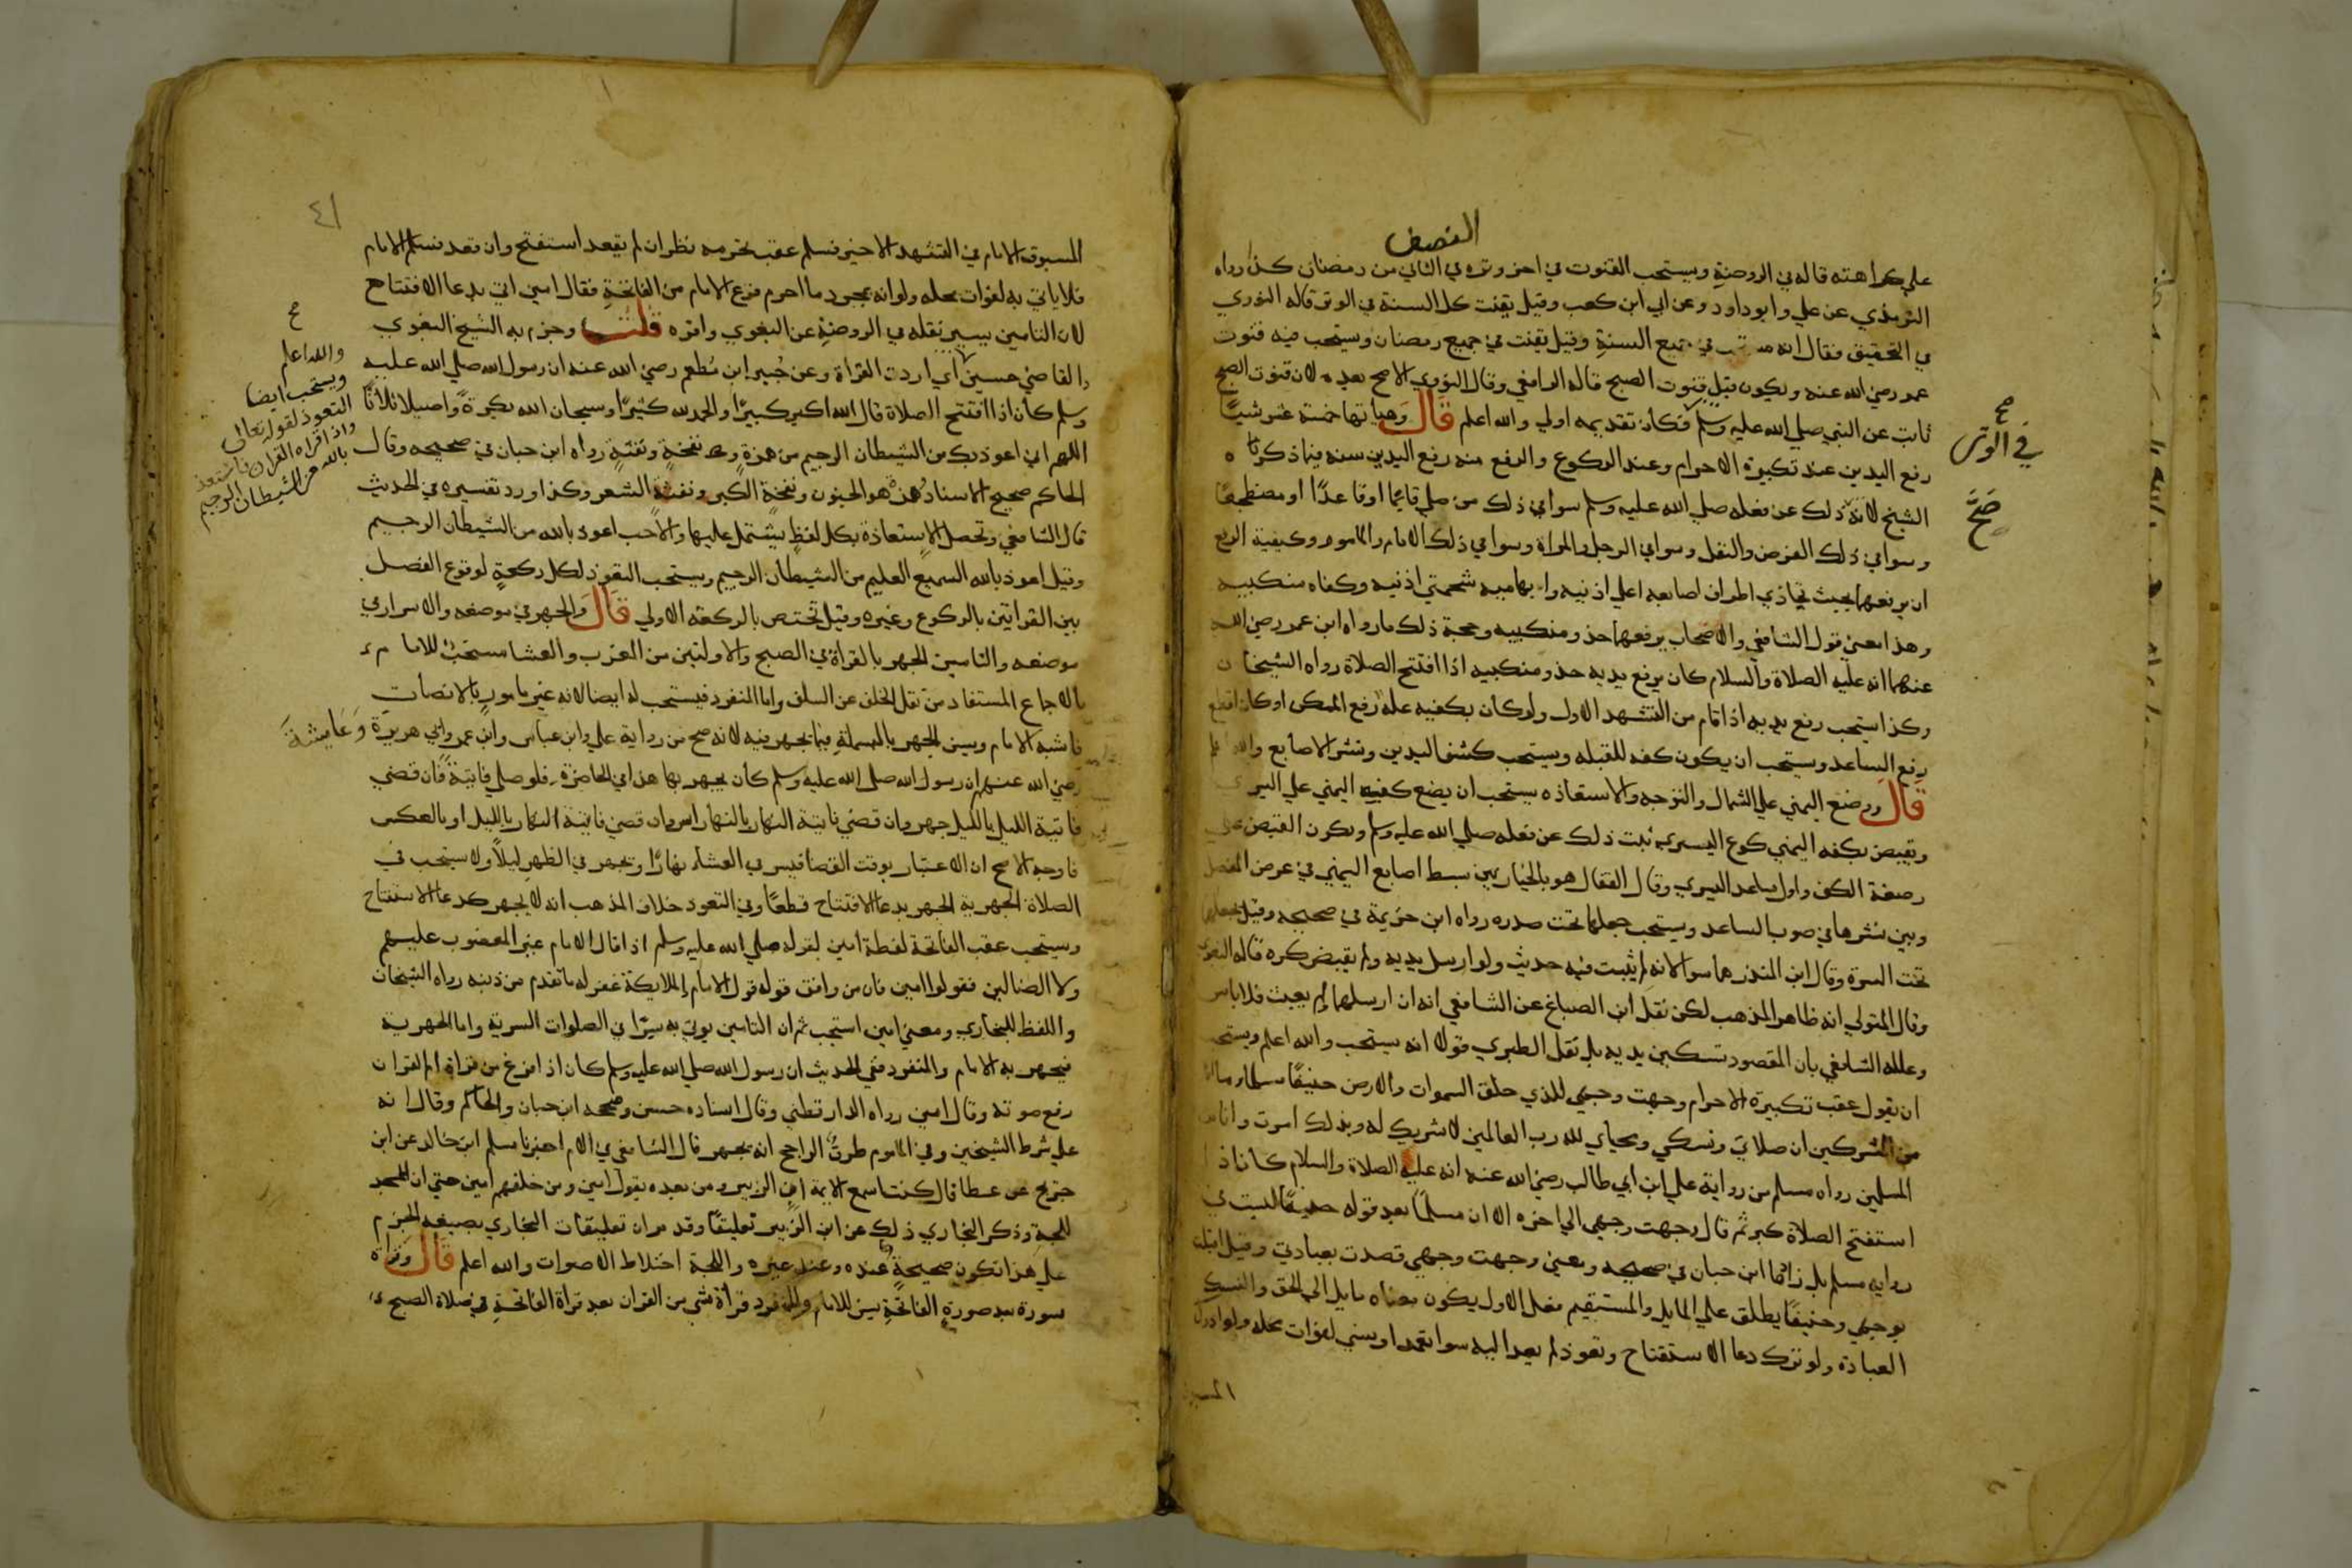 النصف
على كراهته قاله في الروضة ويستحب القنوت في اخر وتره في الثاني من رمضان كذا رواه
الترمذي عن علي وابو داود وعن ابي ابن كعب وقيل يقنت كل السنة في الوتر قاله النووي
في التحقيق فقال انه مستحب في جميع السنة وقيل يقنت في جميع رمضان ويستحب فيه قنوت
عمر رضي الله عنه ويكون قبل قنوت الصبح قاله الرافعي وقال النووي الاصح بعده لان قنوت الصبح
ثابت عن النبي صلى الله عليه وسلم فكان تقديمه اولي والله اعلم قال وهياتها خمسة عشر شيئا
رفع اليدين عند تكبيرة الاحرام وعند الركوع والرفع منه رفع اليدين سنة فيما ذكره
الشيخ لانه ذلك عن فعله صلى الله عليه وسلم سوا في ذلك من صلي قايما او قاعدا او مضطجعا
وسوا في ذلك الفرض والنفل وسوا في الرجل والمراة وسوا في ذلك الامام والماموم وكيفية الرفع
ان يرفعهما بحيث تحاذي اطراف اصابعه اعلي اذنيه وابهاميه شحمتي اذنيه وكفاه منكبيه
وهذا معني قول الشافعي والاصحاب يرفعهما حذو منكبيه وحجة ذلك مارواه ابن عمر رضي الله
عنهما انه عليه الصلاة والسلام كان يرفع يديه حذو منكبيه اذا افتتح الصلاة رواه الشيخان
وكذا يستحب رفع يديه اذا قام من التشهد الاول ولو كان بكفيه علة رفع الممكن او كان اقطع
رفع الساعد ويستحب ان يكون كفه للقبلة ويستحب كشف اليدين ونشر الاصابع والله اعلم
قال ووضع اليمني علي الشمال والتوجه والاستعاذه يستحب ان يضع كفه اليمني علي اليسري
ويقبض بكفه اليمني كوع اليسري ثبت ذلك عن فعله صلى الله عليه وسلم ويكون القبض علي
رصغة الكف واول ساعد اليسري وقال القفال هو بالخيار بين بسط اصابع اليمني في عرض المفصل
وبين نشرها في صوب الساعد ويستحب جعلها تحت صدره رواه ابن خزيمة في صحيحه وقيل يجعلها
تحت السرة وقال ابن المنذر هما سوا لانه لم يثبت فيه حديث ولو ارسل يديه ولم يقبض كره قاله البغوي
وقال المتولي انه ظاهر المذهب لكن نقل ابن الصباغ عن الشافعي انه ان ارسلهما ولم يعبث فلا باس
وعلله الشافعي بان المقصود تسكين يديه بل نقل الطبري قولا انه يستحب والله اعلم ويستحب
ان يقول عقب تكبيرة الاحرام وجهت وجهي للذي خلق السموات والارض حنيفا مسلما وما انا
من المشركين ان صلاتي ونسكي ومحياي لله رب العالمين لا شريك له وبذلك امرت وانا من
المسلمين رواه مسلم من رواية علي ابن ابي طالب رضي الله عنه انه عليه الصلاة والسلام كان اذا
استفتح الصلاة كبر ثم قال وجهت وجهي الي اخره الا ان مسلما بعد قوله حنيفا ليست في
رواية مسلم بل زادها ابن حبان في صحيحه ومعني وجهت وجهي قصدت بعبادتي وقيل اقبلت
بوجهي وحنيفا يطلق علي المايل والمستقيم فعلي الاول يكون معناه مايل الي الحق والنسك
العبادة ولو ترك دعا الاستفتاح وتعوذ لم يعد اليه سوا تعمد او نسي لفوات محله ولو ادرك
المسبوق
في الوتر
صح
٤١
المسبوق الامام في التشهد الاخير فسلم عقب تحرمه نظر ان لم يقعد استفتح وان قعد فسلم الامام
فلا ياتي به لفوات محله ولو انه بمجرد ما احرم فرغ الامام من الفاتحة فقال امين اتي بدعا الافتتاح
لان التامين يسير نقله في الروضة عن البغوي واقره قلت وجزم به الشيخ البغوي
والقاضي حسين اي اردت القراة وعن جبير ابن مطعم رضي الله عنه ان رسول الله صلى الله عليه
وسلم كان اذا افتتح الصلاة قال الله اكبر كبيرا والحمد لله كثيرا وسبحان الله بكرة واصيلا ثلاثا
اللهم اني اعوذ بك من الشيطان الرجيم من همزه ونفخه ونفثه رواه ابن حبان في صحيحه وقال
الحاكم صحيح الاسناد همزه هو الجنون ونفخة الكبر ونفثه الشعر وكذا ورد تفسيره في الحديث
قال الشافعي وتحصل الاستعاذة بكل لفظ يشتمل عليها والاحب اعوذ بالله من الشيطان الرجيم
وقيل اعوذ بالله السميع العليم من الشيطان الرجيم ويستحب التعوذ لكل ركعة لوقوع الفصل
بين القراتين بالركوع وغيره وقيل تختص بالركعة الاولي قال والجهر في موضعه والاسرار في
موضعه والتامين الجهر بالقراة في الصبح والاولتين من المغرب والعشا مستحب للامام
بالاجماع المستفاد من نقل الخلف عن السلف واما المنفرد فيستحب له ايضا لانه غير مامور بالانصات
فاشبه الامام ويسن الجهر بالبسملة فيما يجهر فيه لانه صح من رواية علي وابن عباس وابن عمر وابي هريرة وعايشة
رضي الله عنهم ان رسول الله صلى الله عليه وسلم كان يجهر بها هذا في الحاضرة فلو صلي فايتة فان قضي
فايتة الليل بالليل جهر وان قضي فايتة النهار بالنهار اسر وان قضي فايتة النهار بالليل او بالعكس
فاوجه الاصح ان الاعتبار بوقت القضا فيسر في العشاء نهارا ويجهر في الظهر ليلا ولا يستحب في
الصلاة الجهرية الجهر بدعا الافتتاح قطعا وفي التعوذ خلاف المذهب انه لا يجهر كدعا الاستفتاح
ويستحب عقب الفاتحة لفظة امين لقوله صلي الله عليه وسلم اذا قال الامام غير المغضوب عليهم
ولا الضالين فقولوا امين فان من وافق قوله قول الملايكة غفر له ما تقدم من ذنبه رواه الشيخان
واللفظ للبخاري ومعني امين استجب ثم ان التامين يوتي به سرا في الصلوات السرية واما الجهرية
فيجهر به الامام والمنفرد ففي الحديث ان رسول الله صلي الله عليه وسلم كان اذا فرغ من قراة ام القران
رفع صوته وقال امين رواه الدارقطني وقال اسناده حسن وصححه ابن حبان والحاكم وقال انه
علي شرط الشيخين وفي الماموم طرق الراجح انه يجهر قال الشافعي في الام اخبرنا مسلم ابن خالد عن ابن
جريج عن عطا قال كنت اسمع الايمة ابن الزبير ومن بعده يقول امين ومن خلفهم امين حتي ان للمسجد
للجة وذكر البخاري ذلك عن ابن الزبير تعليقا وقد مر ان تعليقات البخاري بصيغة الجزم
علي هذا تكون صحيحة عنده وعند غيره واللجة اختلاط الاصوات والله اعلم قال وقراة
سورة بعد سورة الفاتحة يسن للامام وللمنفرد قراة شي من القران بعد قراة الفاتحة في صلاة الصبح
والله اعلم
ويستحب ايضا
التعوذ لقوله تعالى
واذا قراه القران فاستعذ
بالله من الشيطان الرجيم